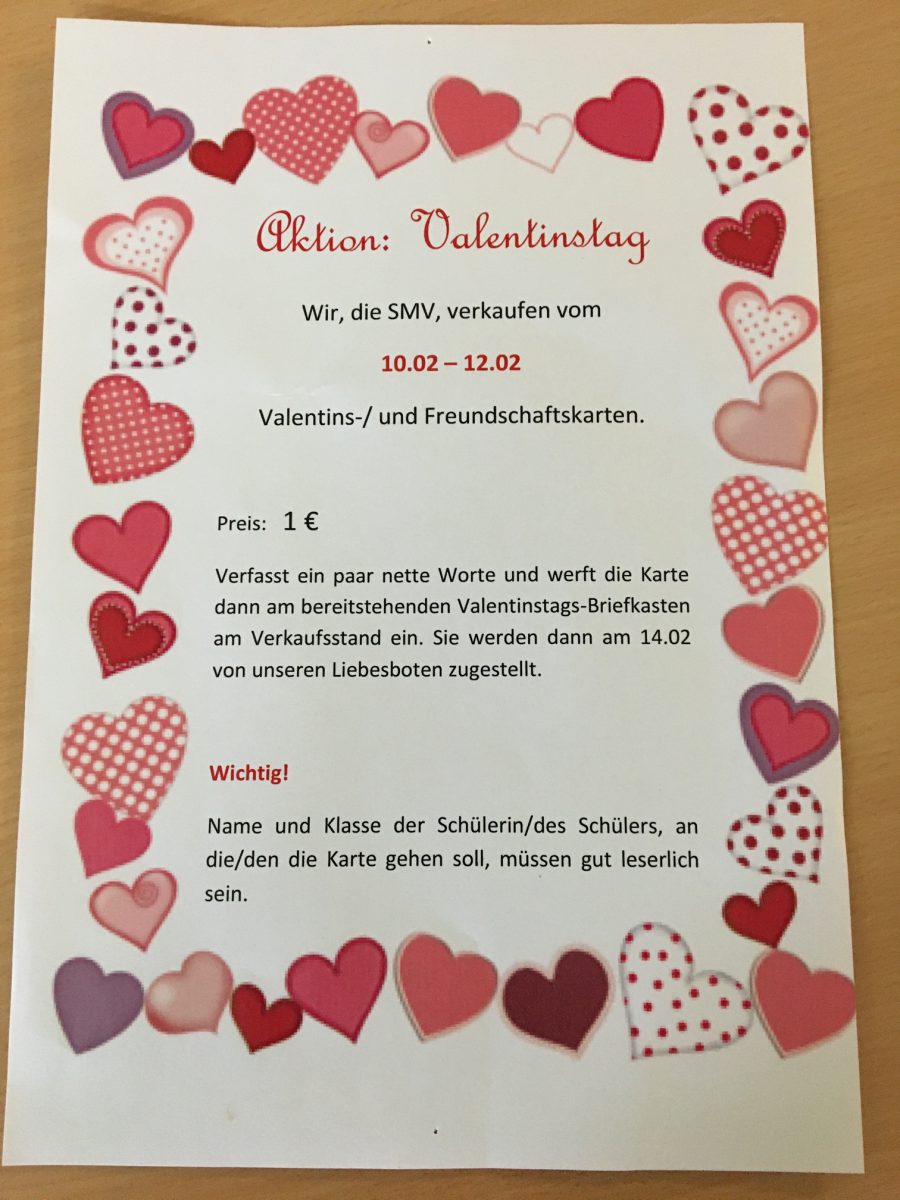 Aktion: Valentinstag
Wir, die SMV, verkaufen vom
10.02 – 12.02
Valentins-/ und Freundschaftskarten.
Preis: 1 €
Verfasst ein paar nette Worte und werft die Karte
dann am bereitstehenden Valentinstags-Briefkasten
am Verkaufsstand ein. Sie werden dann am 14.02
von unseren Liebesboten zugestellt.
Wichtig!
Name und Klasse der Schülerin/des Schülers, an
die/den die Karte gehen soll, müssen gut leserlich
sein.